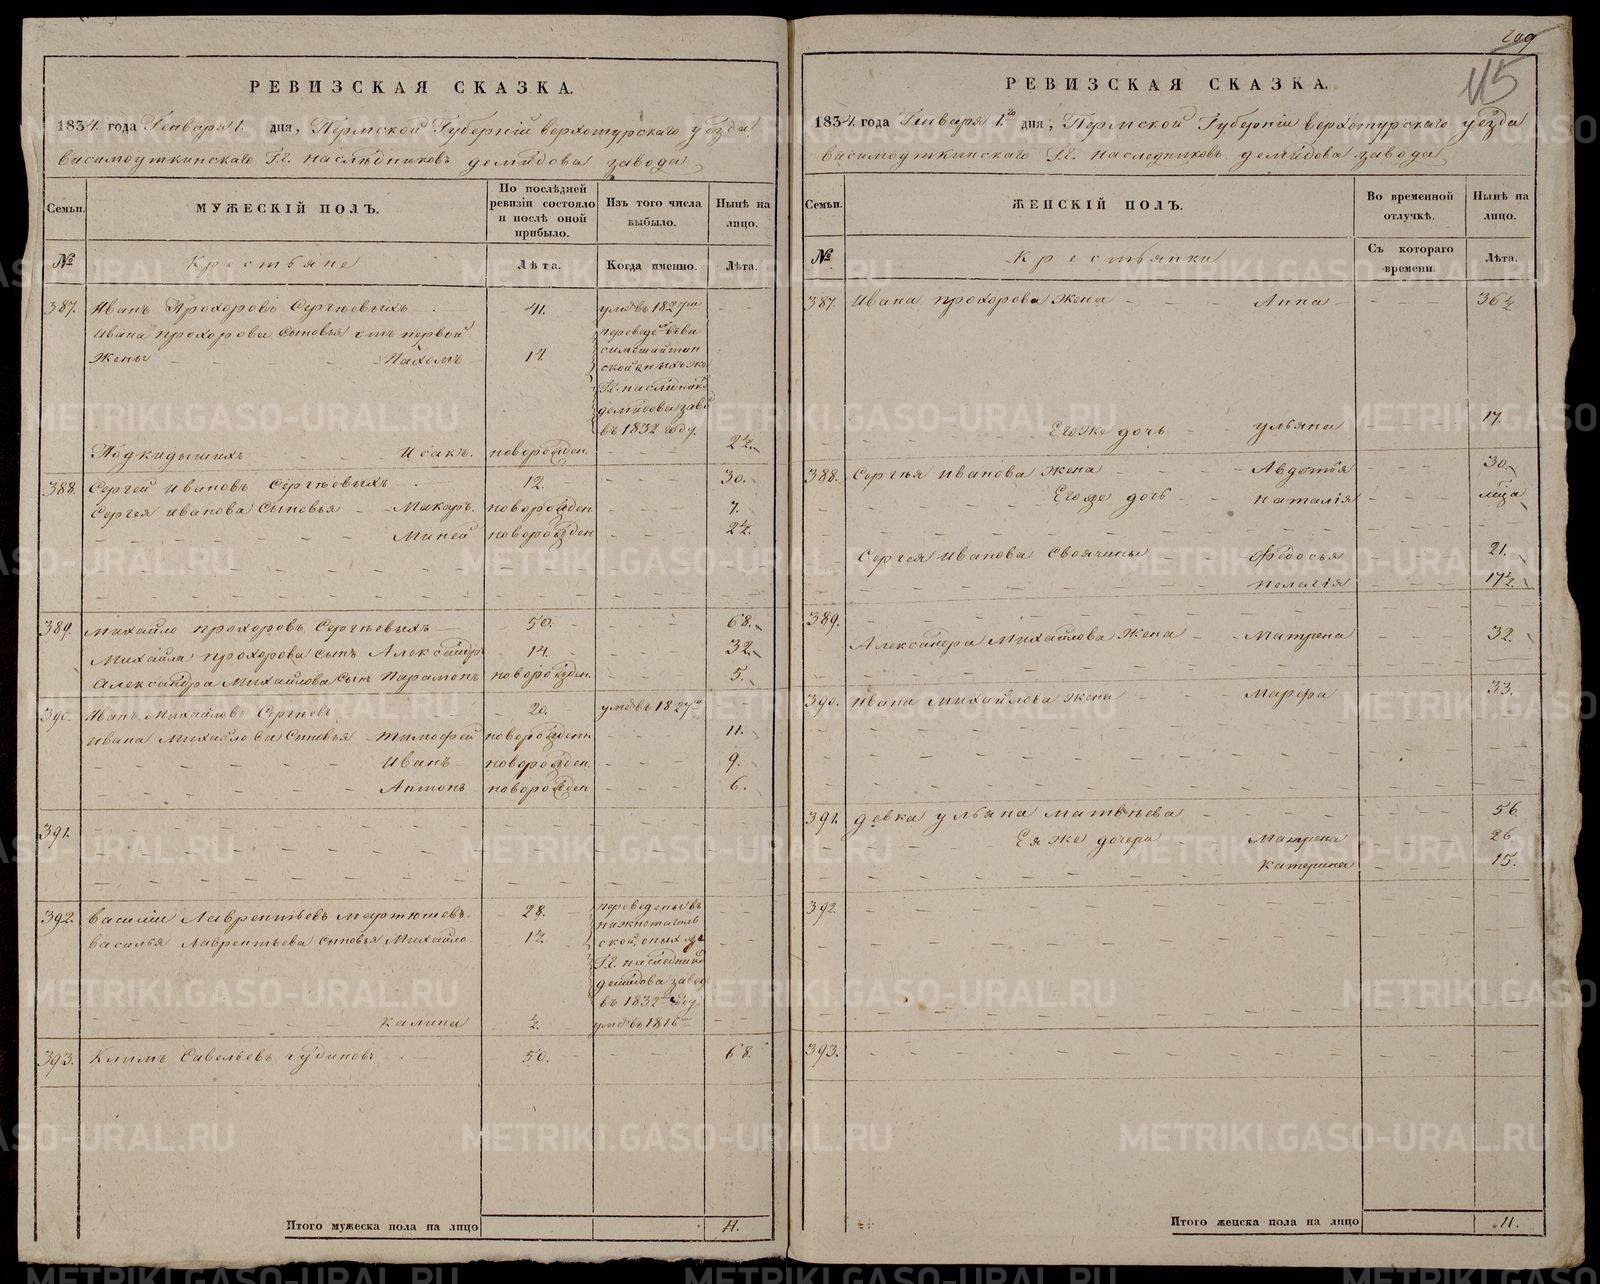 РЕВИЗСКАЯ СКАЗКА.
1834. года Генваря 1. дня, Пермской Губерніи верхотурскаго уѣзда
висимоуткинскаго Г.г. наследниковъ демидова завода
Семьи.
МУЖЕСКІЙ ПОЛЪ.
По послѣдней ревизіи состояло и послѣ оной прибыло.
Изъ того числа выбыло.
Нынѣ на лицо.
№
Крестьяне
Лѣта.
Когда именно.
Лѣта.
387. Иванъ Прохоровъ Сергѣевыхъ 41. умѣ въ 1827мъ
Ивана прохорова сыновья отъ первой
жены Пахомъ 14.
Г.г. наследник
демидова заво
въ 1832 году.
Подкидышихъ Исакъ. новорожден. 2½.
388. Сергей Ивановъ Сергѣевыхъ 12. 30.
Сергея иванова сыновья Макаръ. новорожден. 7.
Миней новорожден 2½.
389. Михайло прохоровъ Сергѣевыхъ 50. 68.
Михайла прохорова сынъ Александр 14. 32.
Александра Михайлова сынъ Парамонъ новорожден. 5.
390. Иванъ Михайловъ Сергѣевъ 20. умѣ въ 1827
Ивана Михайлова сыновья тимофей новорожден 11.
Иванъ новорожден. 9.
Антонъ новорожден 6.
391.
392. Василіи Лаврентьевъ мартюшевъ 28. переведены въ
василья Лаврентьева сыновья Михайло 1½ нижнетагиль
ской, оных же
Г.г. наследник
демидова завод
въ 1832 году
калина ½. умѣ въ 1816
393. Климъ Савельевъ чудиновъ 50. 68.
Итого мужеска пола на лицо 11.
209
115
РЕВИЗСКАЯ СКАЗКА.
1834. года Генваря 1.го дня, Пермской Губерніи верхотурскаго уѣзда
висимоуткинскаго Г.г. наследниковъ демидова завода
Семьи.
ЖЕНСКІЙ ПОЛЪ.
Во временной отлучкѣ.
Нынѣ на лицо.
№
Крестьянки
Съ котораго времени.
Лѣта.
387. Ивана прохорова жена Анна 36½
Его же дочь ульяна 17.
388. Сергѣя иванова жена Авдотья 30.
Его же дочь наталія
Сергея иванова своячины Федосья 21.
пелагія 17½.
389.
Александра Михайлова жена Матрена 32.
390. Ивана михайлова жена Марфа 33.
391. девка ульяна матвѣева 56
Ея же дочери Матрена 26
катерина 15.
392.
393.
Итого женска пола на лицо 11.
METRIKI.GASO-URAL.RU